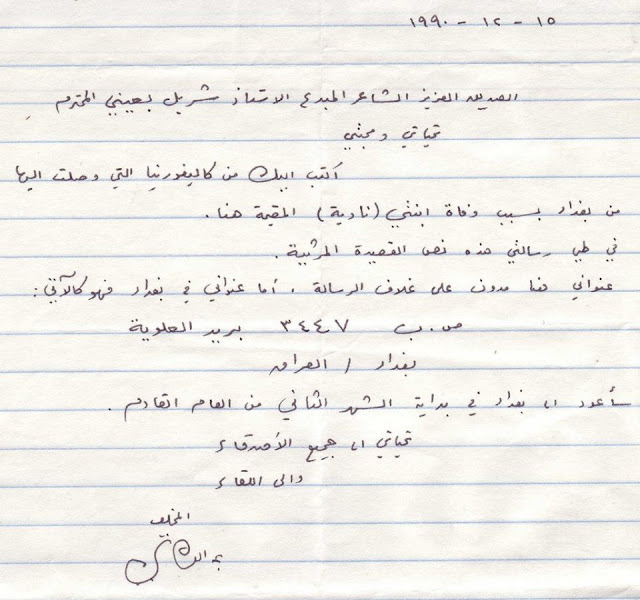 ١٥ - ١٢ - ١٩٩٠
الصديق العزيز الشاعر المبدع الاستاذ شربل بعيني المحترم
تحياتي ومحبتي
اكتب اليك من كاليفورنيا التي وصلت اليها
من بغداد بسبب وفاة ابنتي (نادية) المقيمة هنا.
في طي رسالتي هذه نص القصيدة المرثية.
عنواني هنا مدون على غلاف الرسالة، أما عنواني في بغداد فهو كالآتي:
ص.ب ٣٤٤٧ بريد العلوية
بغداد / العراق
سأعود الى بغداد في بداية الشهر الثاني من العام القادم.
تحياتي الى جميع الأصدقاء
والى اللقاء
المخلص